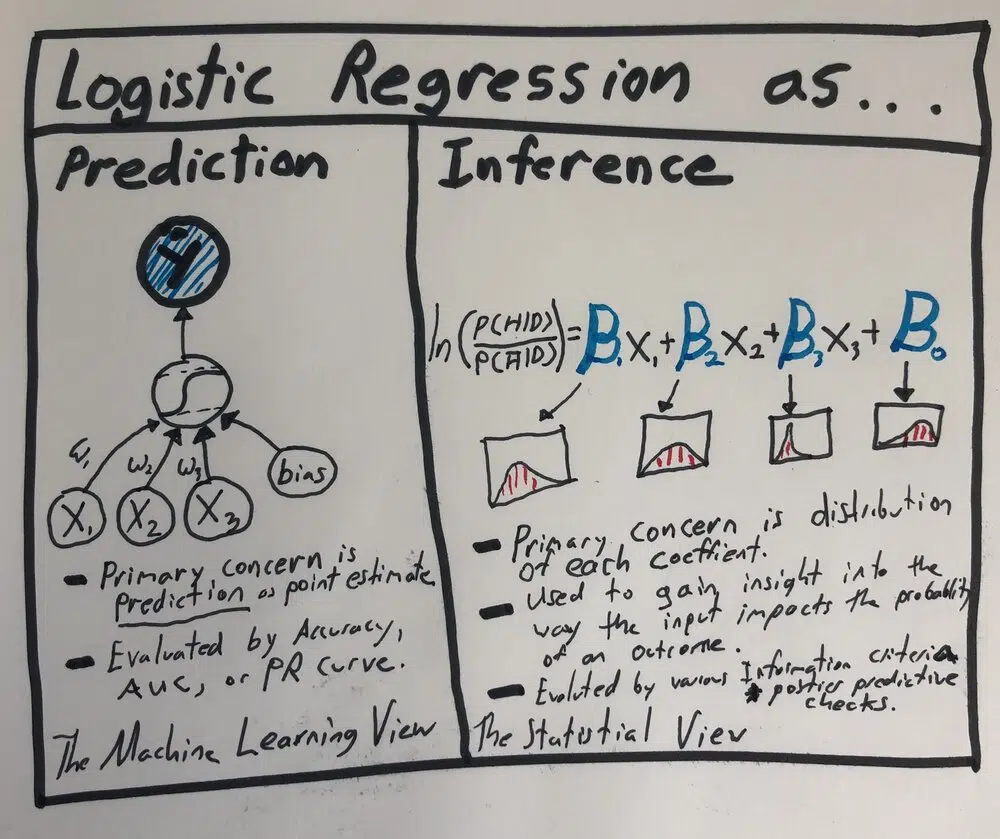 Logistic Regression as...
Prediction
ŷ
ω₁ ω₂ ω₃
bias
X₁ X₂ X₃
- Primary concern is
prediction as point estimate
- Evaluated by Accuracy,
AUC, or PR curve.
The Machine Learning View
Inference
ln(P(H|D)/P(H̅|D))=B₁X₁+B₂X₂+B₃X₃+B₀
- Primary concern is distribution
of each coeffient.
- Used to gain insight into the
way the input impacts the probablity
of an outcome.
- Evoluted by various Information criteria
* postier predictive
checks.
The Statistial View